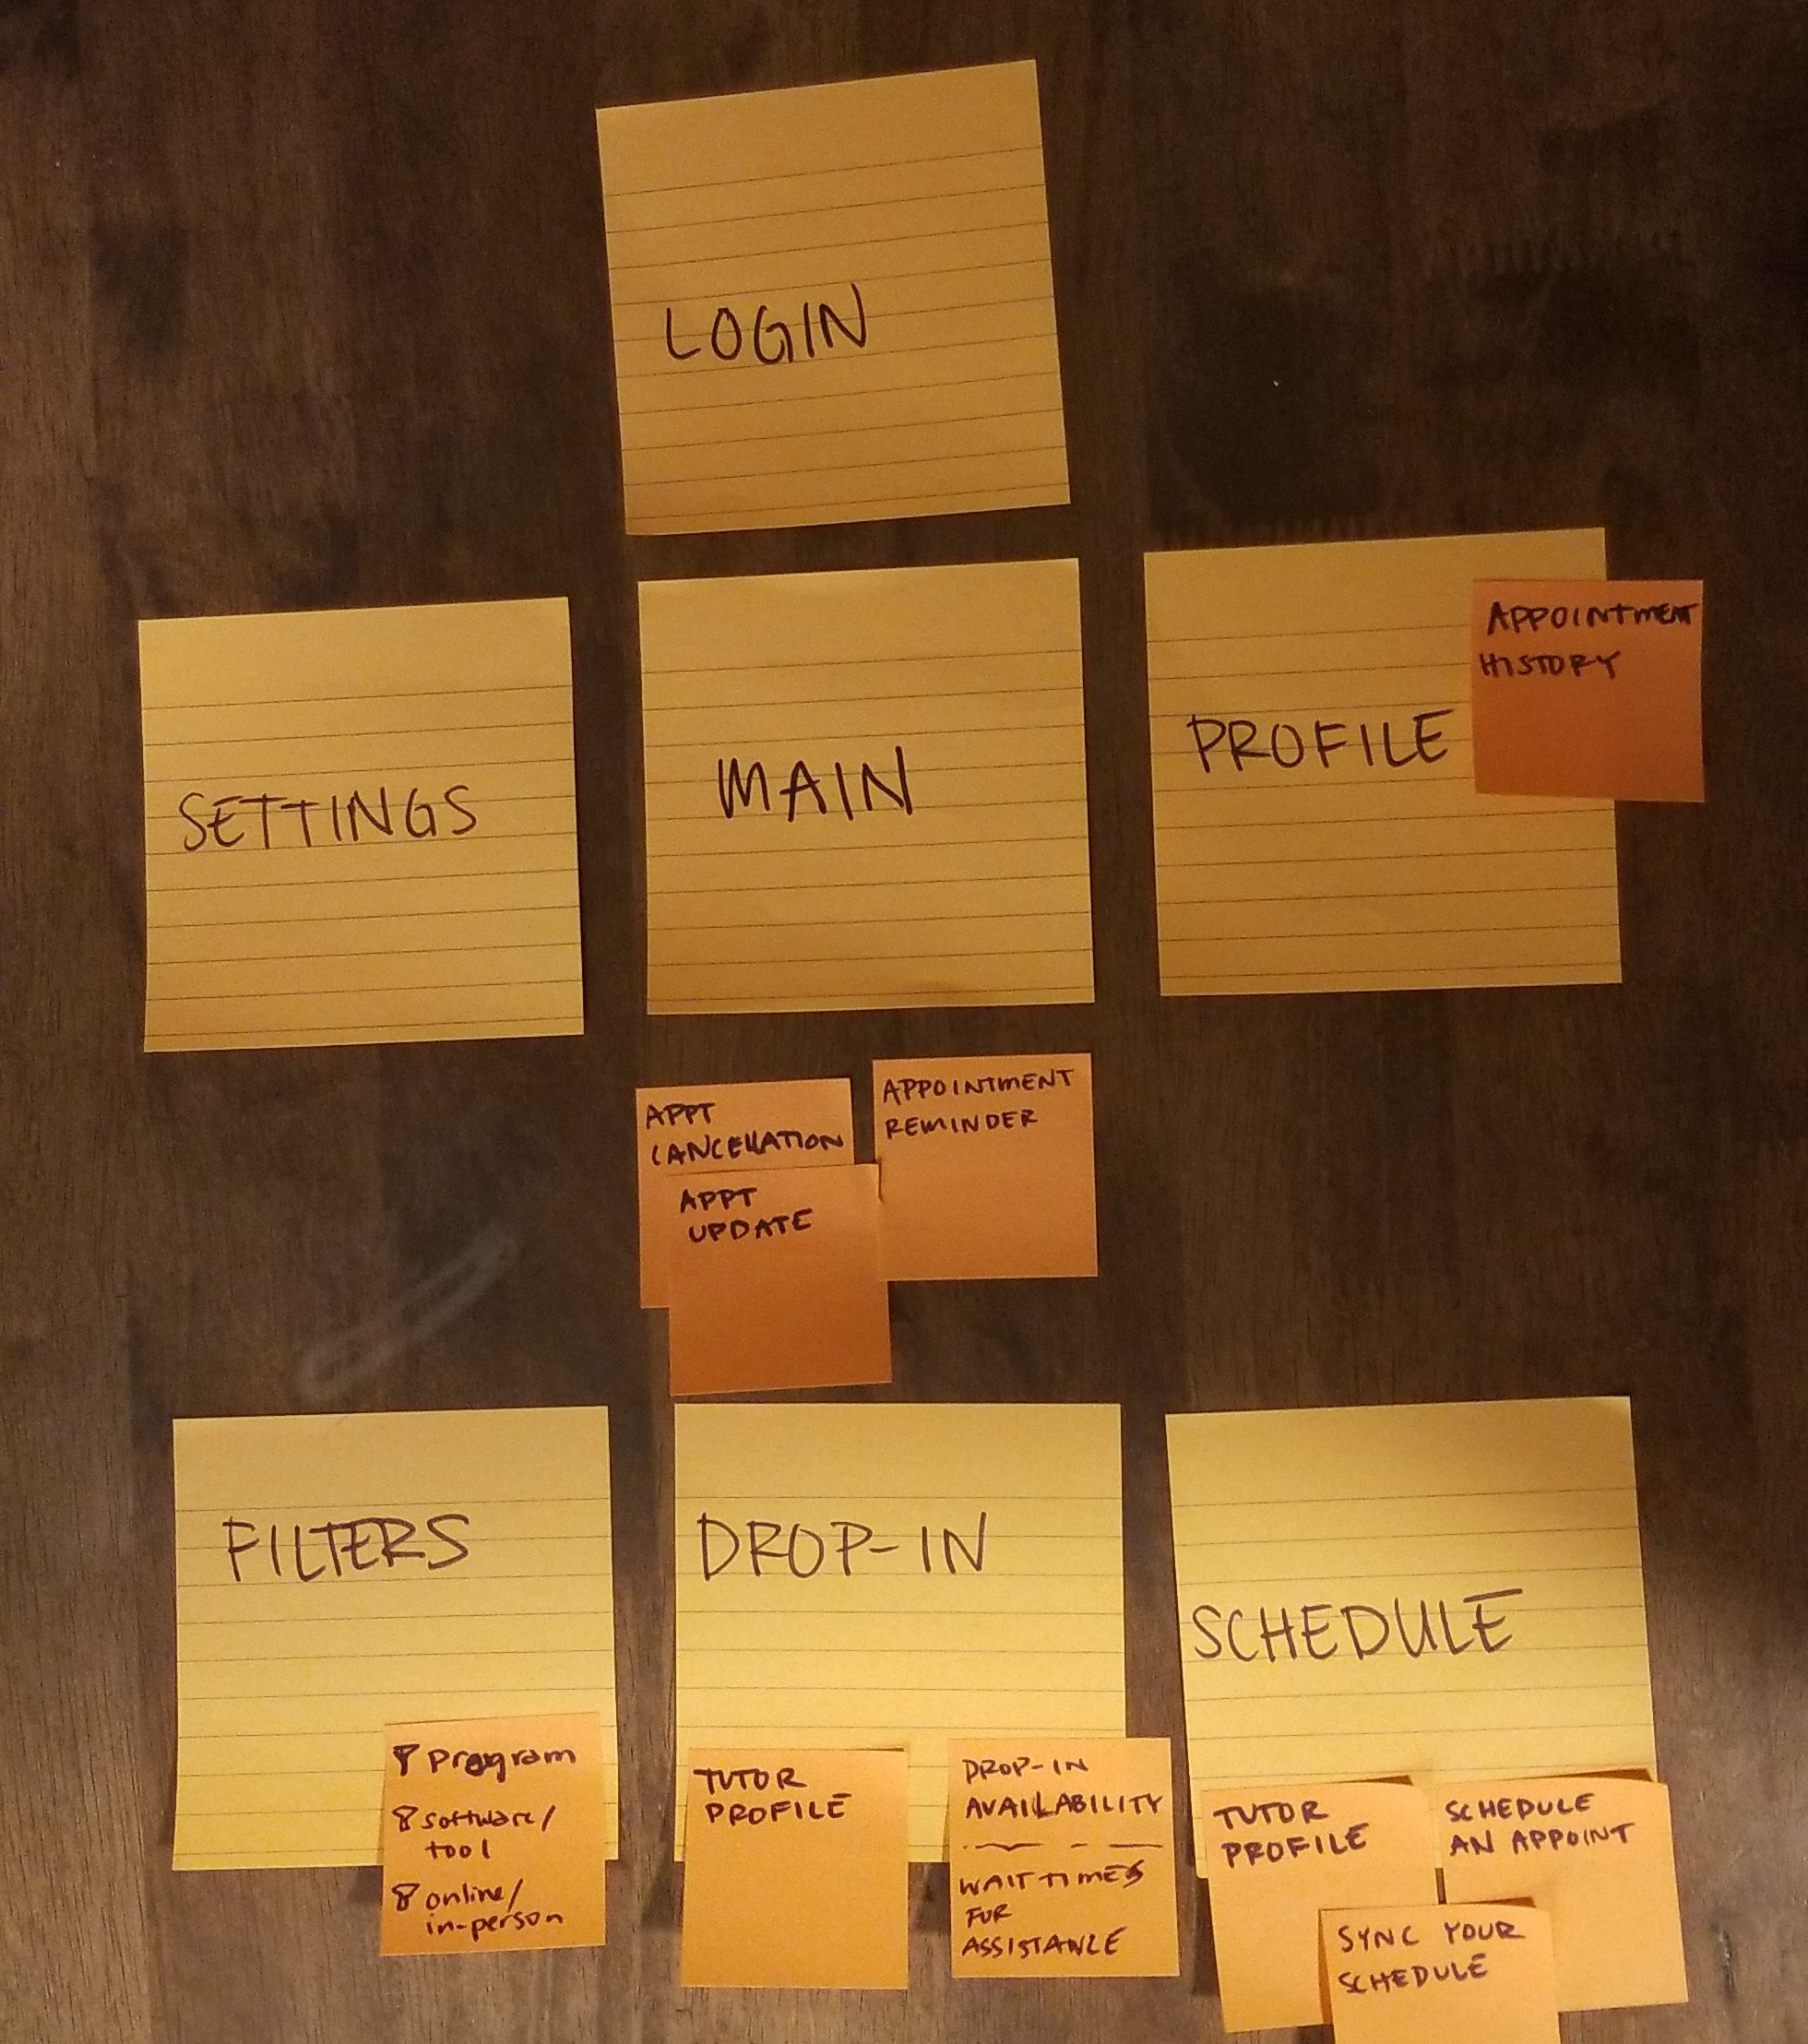 LOGIN
SETTINGS
MAIN
PROFILE
APPOINTMENT
HISTORY
APPT
CANCELLATION
APPT
UPDATE
APPOINTMENT
REMINDER
FILTERS
program
software/
tool
online/
in-person
DROP-IN
TUTOR
PROFILE
DROP-IN
AVAILABILITY
WAIT TIMES
FOR
ASSISTANCE
SCHEDULE
TUTOR
PROFILE
SCHEDULE
AN APPOINT
SYNC YOUR
SCHEDULE